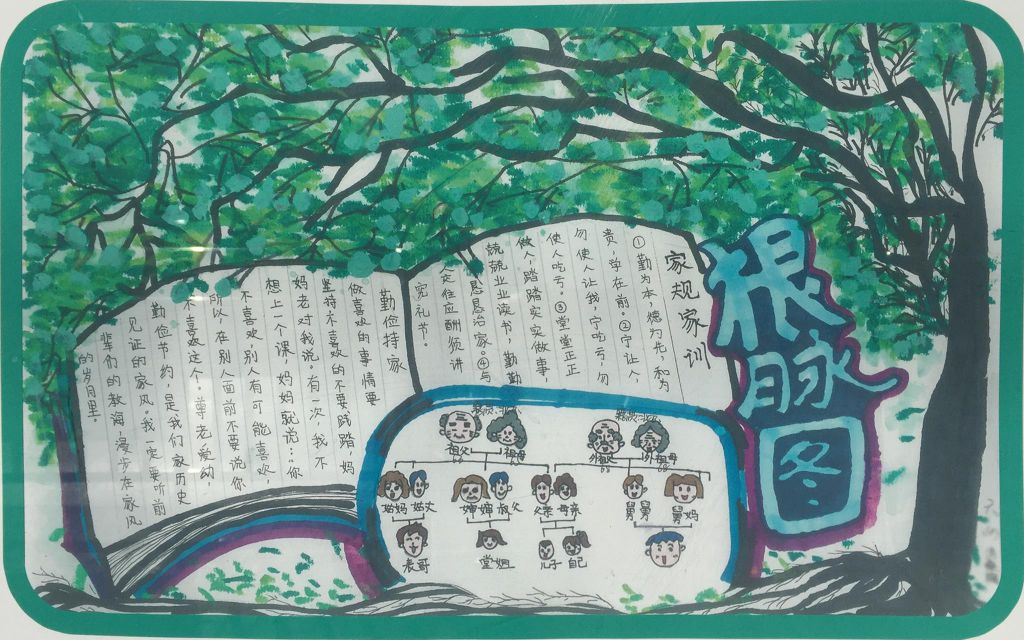 根脉图
家规家训
①勤为本，德为先，和为
贵，学在前。②宁让人，
勿使人让我，宁吃亏，勿
使人吃亏，③堂堂正正
做人，踏踏实实做事，
兢兢业业读书，勤勤
恳恳治家。④与
人定位应酬须讲
究礼节。
勤俭持家
做喜欢的事情要
坚持不喜欢的不要践踏，妈
妈老对我说。有一次，我不
想上一个课，妈妈就说：…你
不喜欢别人有可能喜欢，
所以，在别人面前不要说你
不喜欢这个。尊老爱幼
勤俭节约，是我们家历史
见证的家风。我一定要听前
辈们的教诲，漫步在家风
的岁月里。
祖父 祖母 外祖父 外祖母
姑妈 姑丈 婶婶 叔父 父亲 母亲 舅舅 舅妈
表哥 堂姐 儿子 自己